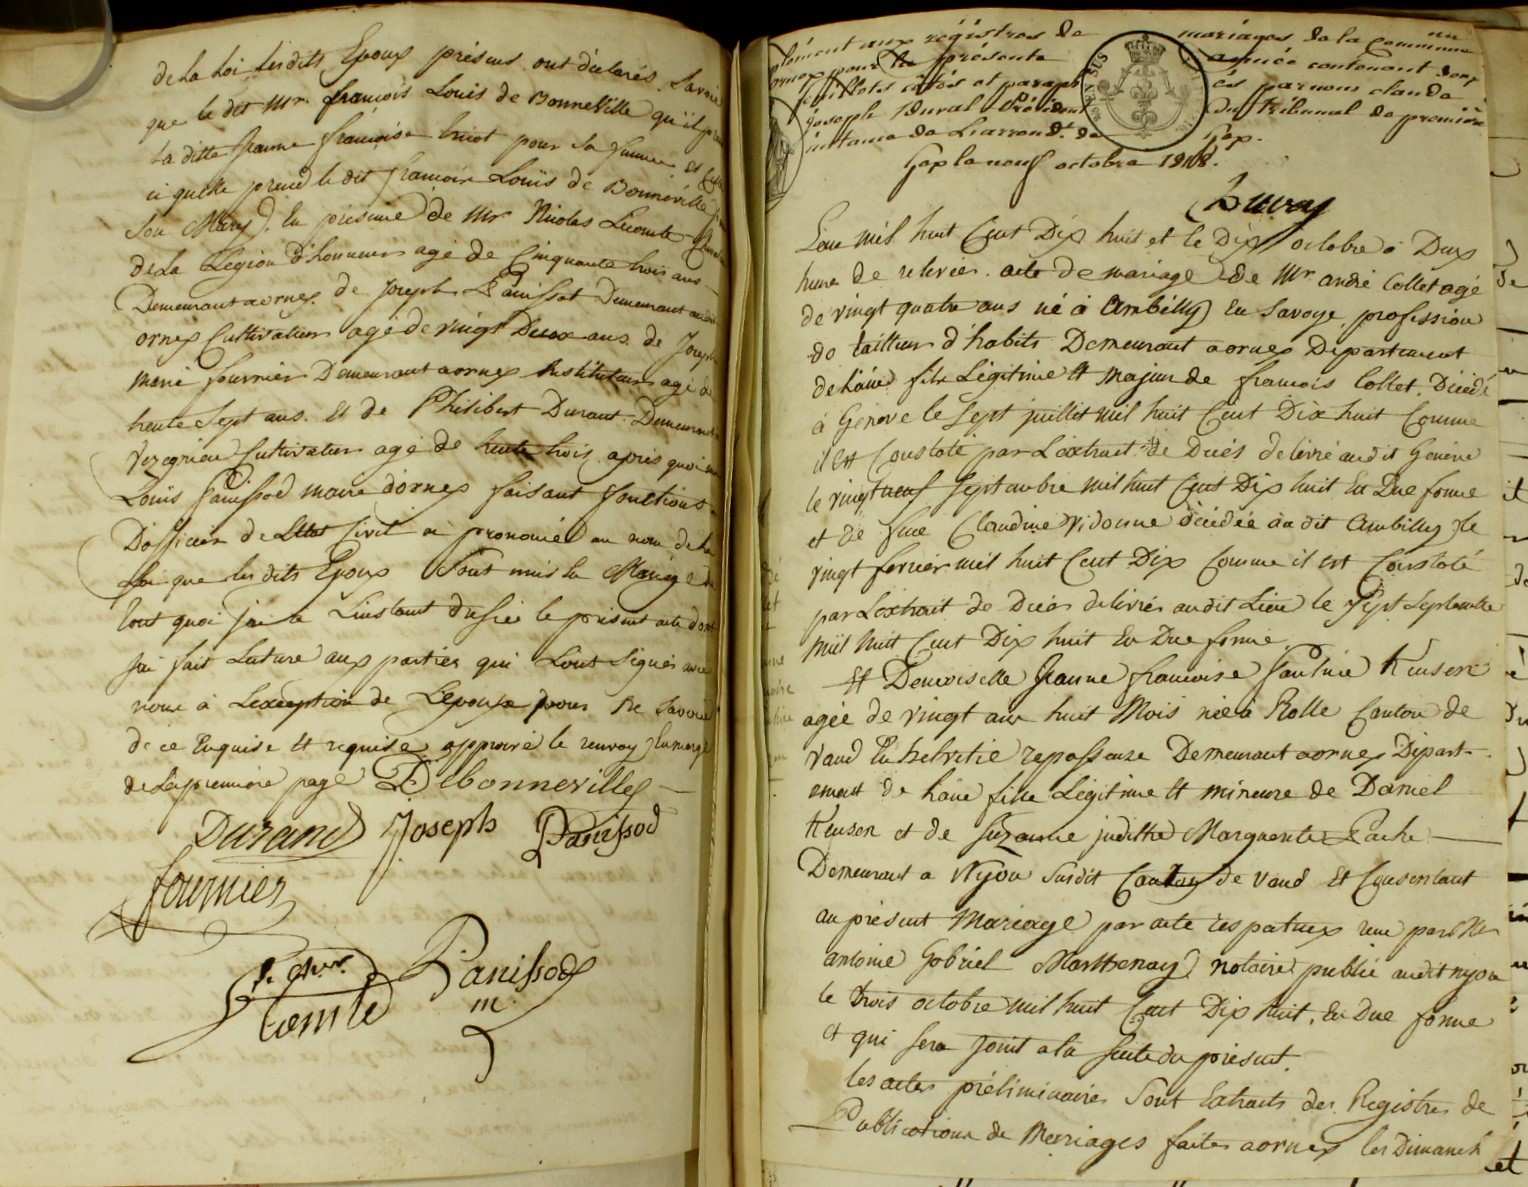 de La Loi Lesdits Epoux présens ont déclarés Savoir
que le dit Mr. françois Louis de BonneVille qu'il
La ditte Jeanne françoise huot pour Sa femme Et
quelle prend le dit francois Louis de Bonneville
Son Mary). En présence de Mr Nicolas Lecomte
de La Légion d'honneur agé de Cinquante trois ans
Demeurant aornex. de Joseph Panissot Demeurant
ornex Cultivateur agé de vingt Deux ans de Joseph
Marie fournier Demeurant aornex Instituteur agé de
trente Sept ans. Et de Philibert Durant Demeurant
Vezegnieu Cultivateur agé de trente trois apris quoi
Louis Panissod maire d'ornex faisant fonctions
D'officier de Lettat Civil a prononcé au nom de La
Loi que les dits Epoux Sont unis En Mariage
tout quoi j'ai a Linstant dressé le présent acte dont
jai fait Lecture aux parties qui L'ont Signés avec
nous à Lexception de L'epouse pour Ne Savoir
de ce Enquise Et requise approuvé le renvoy En marge
de La première page Debonnevilley
Durand Joseph Panissod
fournier
le Chevr. Panissod
Comte m.
plément aux régistres de mariages de la Commune
ornex pour la présente année contenant
feuillets cotés et paraphés par nous claude
joseph Duval Président du tribunal de première
instance de Larrondt. de Gex.
Gex le neuf octobre 1818.
Duval
MENSUS
Lan mil huit Cent Dix huit et le Dix octobre à Dix
heure de relevée. acte de mariage de Mr. andré Collet agé
de vingt quatre ans né à Ambilly En Savoye, profession
de tailleur d'habits Demeurant aornex Departement
de Lain fils Légitime Et majeur de francois Collet. Décédé
à Genève le Sept juillet mil huit Cent Dix huit Comme
il Est Constaté par L'extrait de Décés délivré audit Genève
le vingt neuf Septembre mil huit Cent Dix huit En Due forme
et de feue Claudine Vidonne décédée audit Ambilly le
vingt fevrier mil huit Cent Dix Comme il est Constaté
par L'extrait de Décés délivrés audit Lieu le Sept Septembre
mil huit Cent Dix huit En Due forme.
Et Demoiselle Jeanne francoise Pauline Keusen
agée de vingt ans huit Mois née à Rolle Canton de
Vaud En helvetie repasseuse Demeurant aornex Départ-
ement de Lain fille Légitime Et mineure de Daniel
Keusen et de Suzanne judithe Marguerite Pache
Demeurant a Nyon Susdit Canton de Vaud Et Consentant
au présent Mariage par acte respectueux reçu par Me
antoine Gabriel Marthenay notaire public audit nyon
le trois octobre mil huit Cent Dix huit. En Due forme
et qui Sera Joint a la Suite du présent.
les actes préliminaires Sont Extraits des Registres de
Publications de Mariages faites aornex les Dimanch